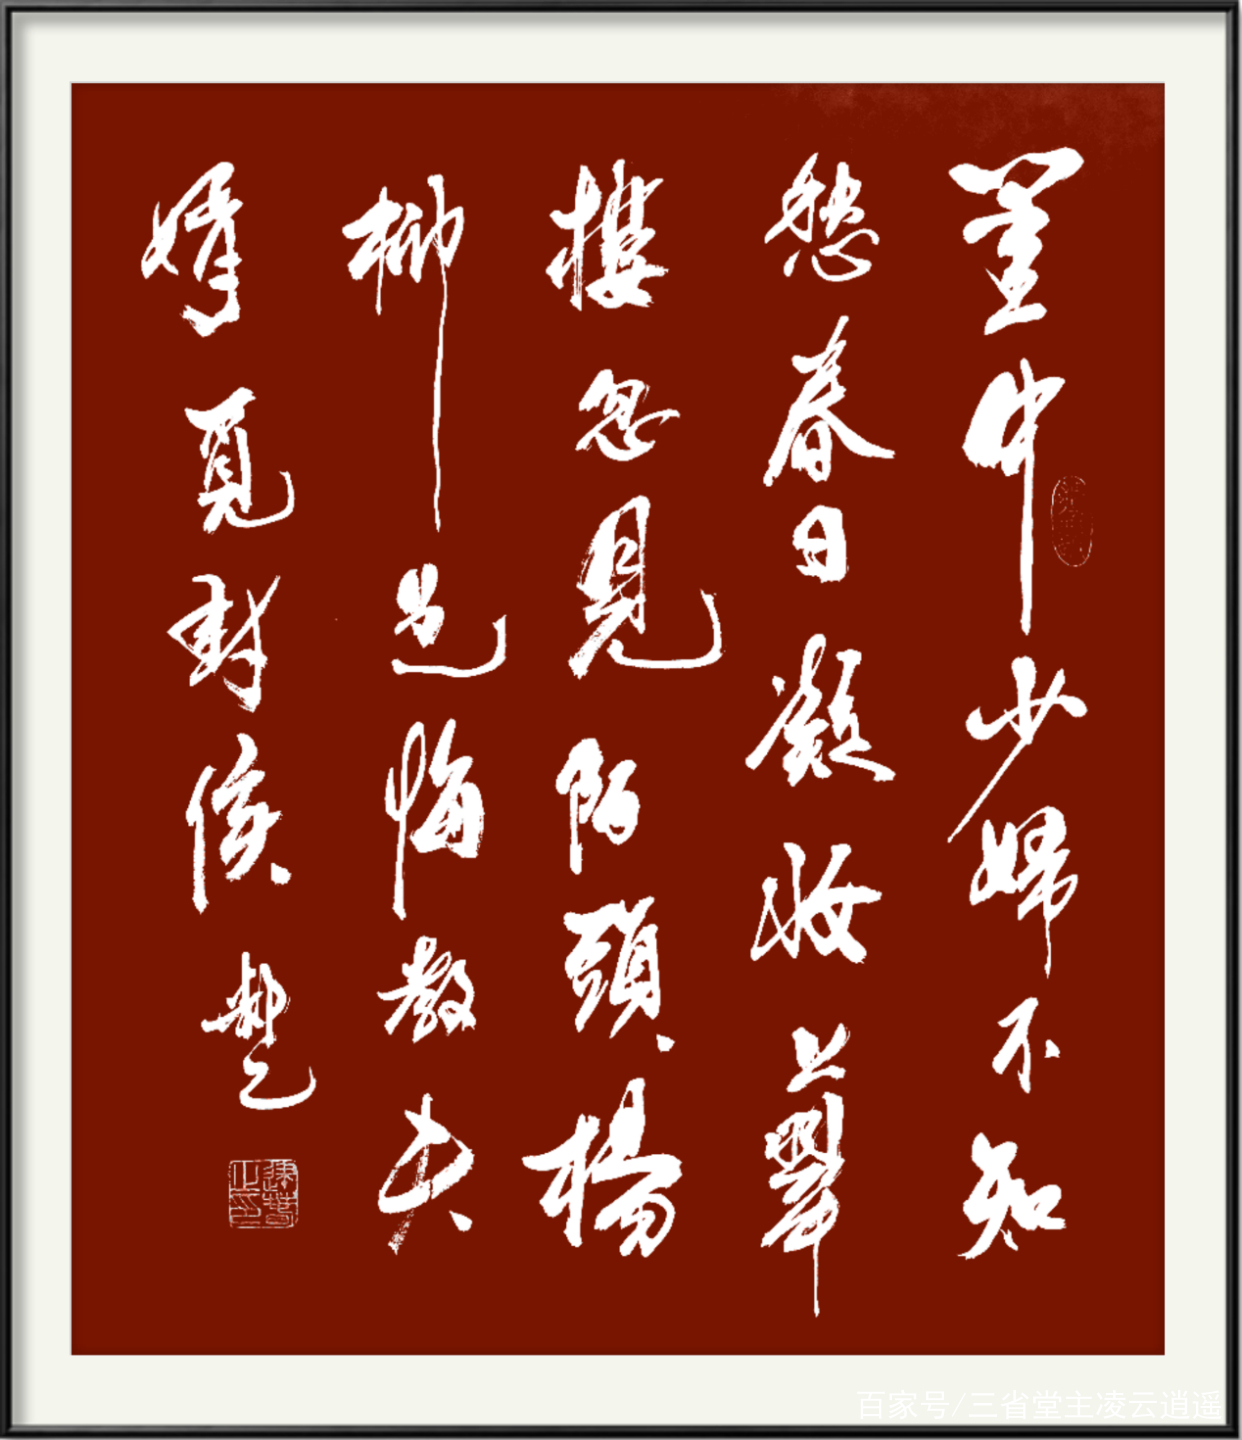 閨中少婦不知
愁春日凝妝上翠
樓忽見陌頭楊
柳色悔教夫
婿覓封侯 楚
百家号/三省堂主凌云逍遥